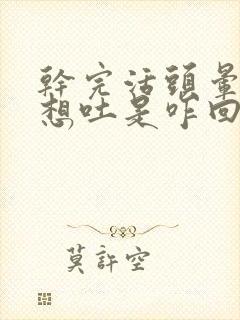 幹完活頭暈
想吐是咋回
莫許空